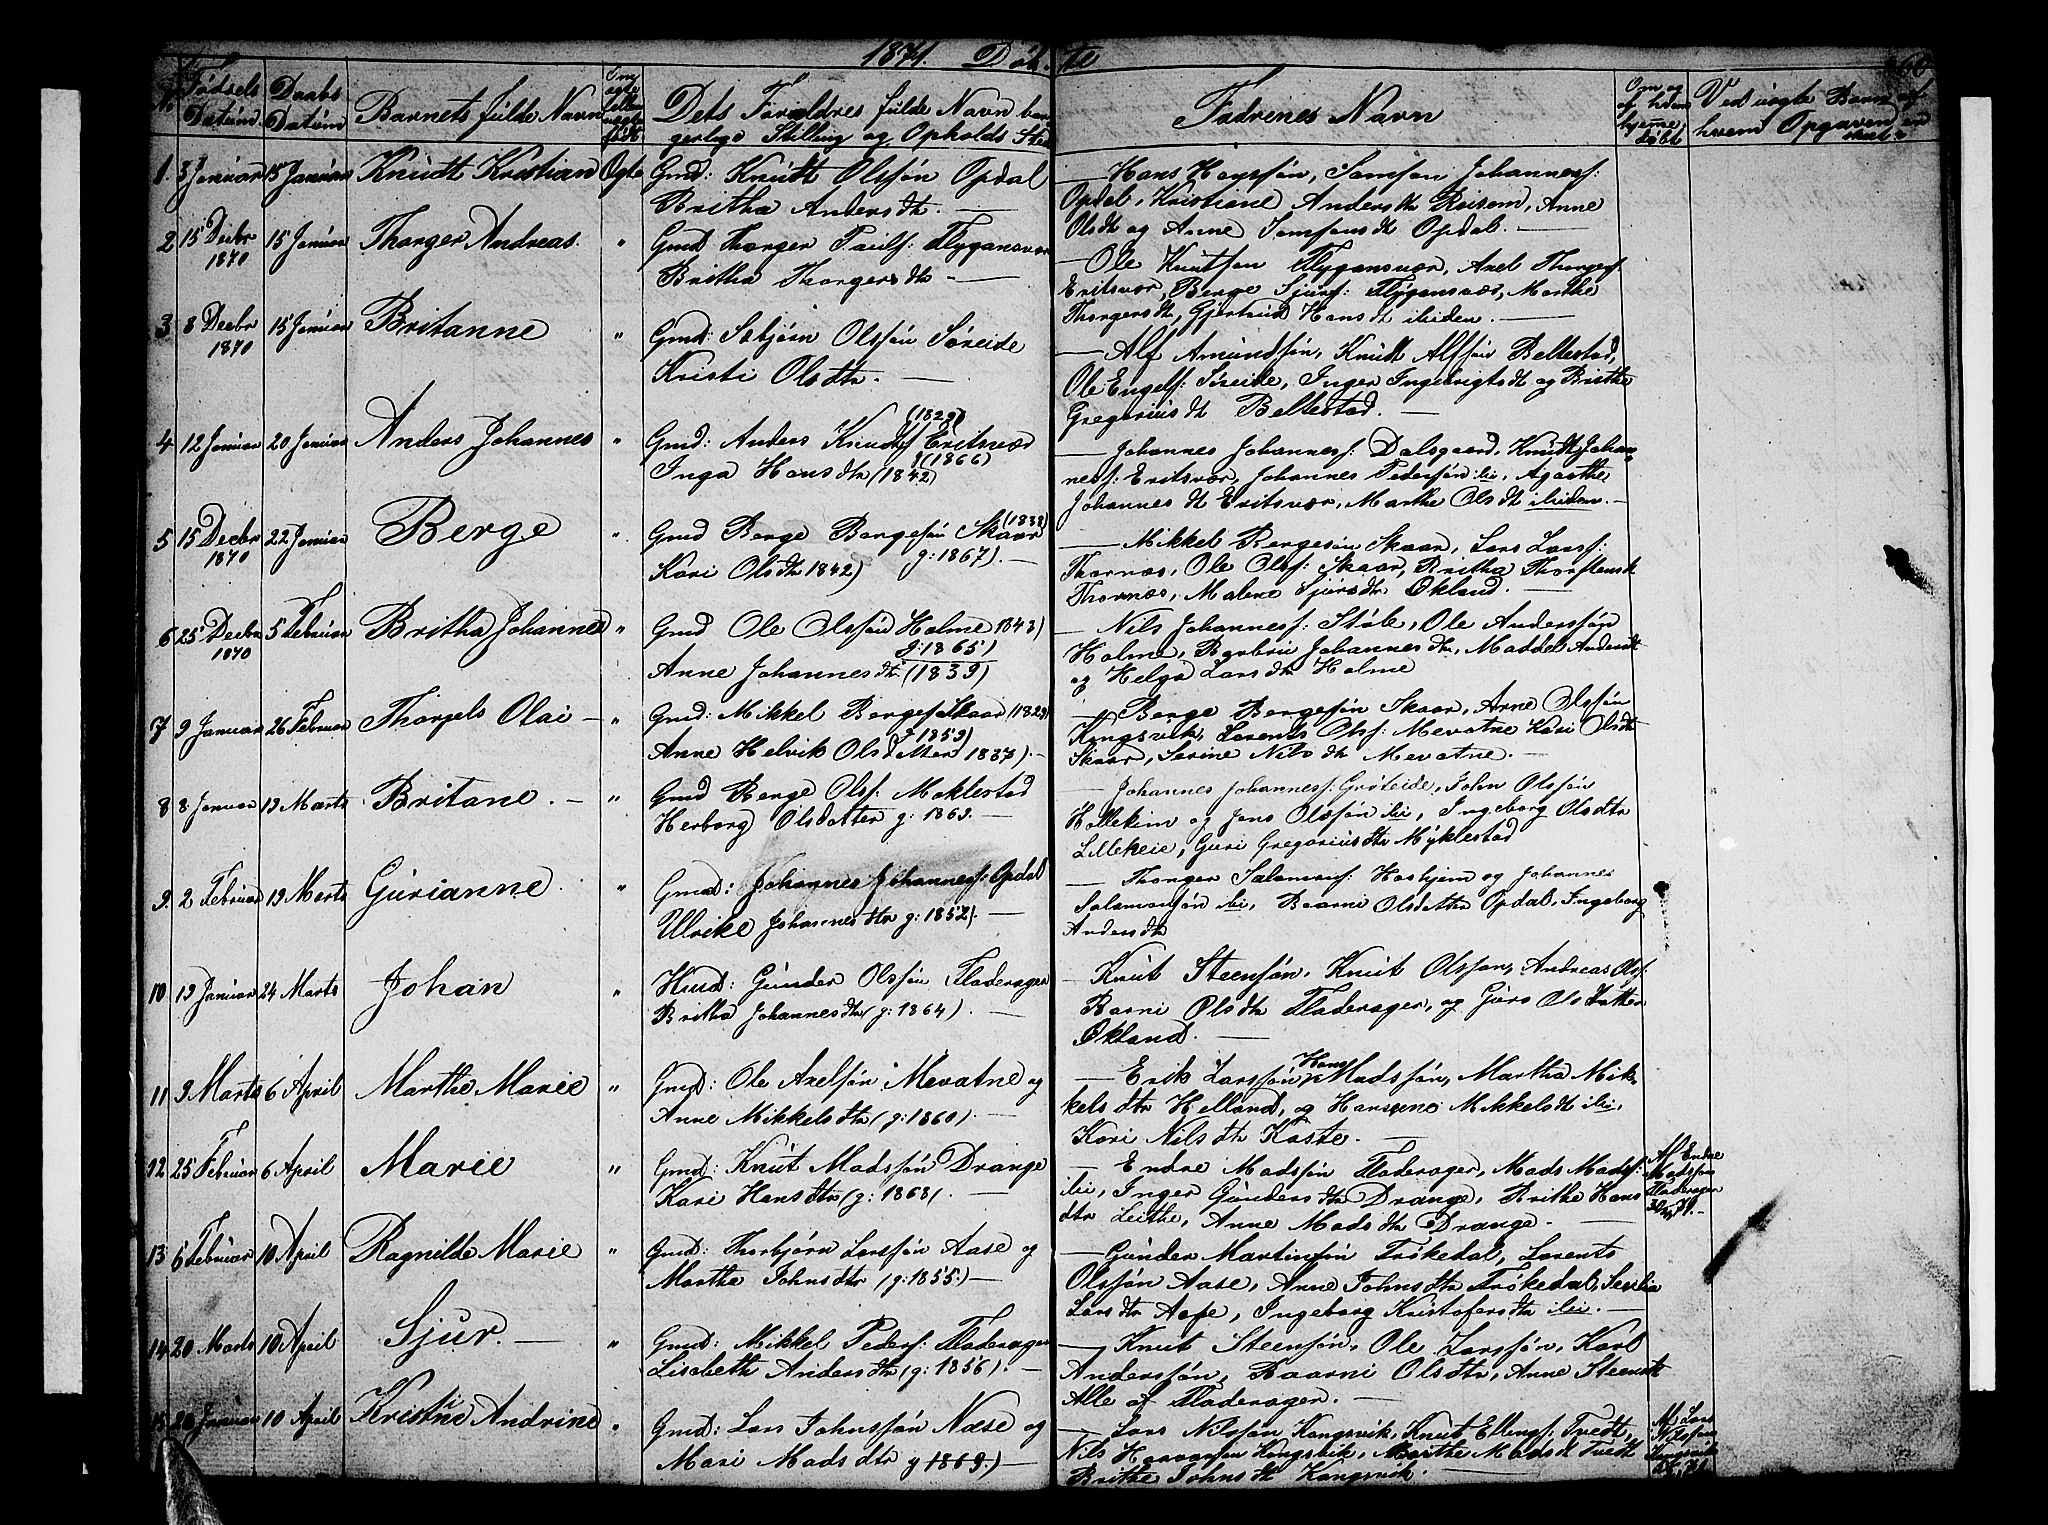 1871. Døbte
Fødsels Datum
Daabs Datum
Barnets fulde Navn
Dets Forældres fulde Navn borgerlige Stilling og Opholds Sted
Fadrenes Navn
Om og af hvem hjemmedøbt
Ved uægte Børn af hvem Opgaven
1. 3 Januar 15 Januar Knudt Kristian Egte
Gmd: Knudt Olssøn Opdal
Britha Andersdtr.
Hans Hanssøn, Samson Johannesf:
Opdal, Kristiane Andersdtr Risem, Anne
Olsdt og Anne Samsonsdt Opdal.
2 15 Decbr 1870 15 Januar Thorger Andreas. "
Gmd Thorger Paulf: Flygansvær
Britha Thorgersdtr
Ole Knutsøn Flygansvær, Axel Thorgerf.
Eritsvær, Berge Sjurf: Flygansvær, Marthe
Thorgersdt, Gjertrud Hansdt ibiden.
3 8 Decbr 1870 15 Januar Britanne "
Gmd: Sæbjørn Olssøn Søreide
Kristi Olsdtr.
Alf Amundsøn, Knudt Alfsøn Bellestad,
Ole Engelf: Søreide, Inger Ingebrigtsdt og Brithe
Gregoriusdt Bellestad.
4 12 Januar 20 Januar Anders Johannes "
Gmd: Anders Knudsf Eritsvær (1829)
g (1866)
Inga Hansdtr (1842)
Johannes Johannesf: Dalsgaard, Knudt Johan
nesf: Eritsvær, Johannes Pedersøn ibi, Agathe
Johannesdt Eritsvær, Marthe Olsdt ibiden.
5 15 Decbr 1870 22 Januar Berge "
Gmd Berge Bergesøn Skaar (1838)
Kari Olsdtr 1842) g: 1867).
Mikkel Bergesøn Skaar, Lars Larsf:
Thornæs, Ole Olsf: Skaar, Britha Thorstensdt
Thornæs, Malene Sjursdtr Økland.
6 25 Decbr 1870 5 Februar Britha Johanne "
Gmd Ole Olssøn Holme 1843)
g: 1865)
Anne Johannesdtr (1839)
Nils Johannesf: Støle, Ole Anderssøn
Holme, Barbru Johannesdtr, Madde Andersdt
og Helga Larsdtr Holme
7 9 Januar 26 Februar Thorgels Olai "
Gmd: Mikkel Bergesf Skaar (1829)
g 1859)
Anne Helvik Olsdatter 1837).
Berge Bergesøn Skaar, Arne Olssøn
Kongsvik, Lorents Olsf: Mevatne Kari Olsdtr
Skaar, Serine Nilsdtr Mevatne.
8 8 Januar 19 Marts Britane. "
Gmd Berge Olsf: Moklestad
Herborg Olsdatter g: 1863.
Johannes Johannesf: Grøteide, John Olssøn
Hollekim og Jens Olssøn ibi, Ingeborg Olsdtr
Lillekeie, Guri Gregoriusdtr Myklestad
9. 2 Februar 19 Marts Gurianne. "
Gmd: Johannes Johannesf: Opdal
Ulrike Johannesdtr g: 1852).
Thorger Salamonsf: Hasbjem og Johannes
Salamonsøn ibi, Baarni Olsdatter Opdal, Ingeborg
Andersdtr
10 19 Januar 24 Marts Johan "
Hmd: Gunder Olssøn Fladerager
Britha Johannesdtr (g: 1864).
Knut Steensøn, Knut Olsson, Andreas Olsf:
Barni Olsdtr Fladerager, og Guro Olsdatter
Økland.
11 9 Marts 6 April Marthe Marie "
Gmd: Ole Axelsøn Mevatne og
Anne Mikkelsdtr (g: 1860).
Erik Larssøn, Hans Madssøn, Martha Mik
kelsdtr Helland, og Hansine Mikkelsdt ibi,
Kari Nilsdtr Kaste.
12 25 Februar 6 April Marie "
Gmd: Knut Madssøn Drange
Kari Hansdtr (g: 1868).
Endre Madssøn Fladerager, Mads Madsf:
ibi, Inger Gundersdtr Drange, Brithe Hans
dtr Leithe, Anne Madsdtr Drange.
Af Endre Madsson Fladerager
13 6 Februar 10 April Ragnilde Marie "
Gmd: Thorbjørn Larssøn Aase og
Marthe Johnsdtr (g: 1855.)
Gunder Martinsøn Trøkedal, Lorents
Olssøn Aase, Anne Johnsdtr Trøkedal, Sesilia
Larsdtr Aase, Ingeborg Kristofersdtr ibi.
14 20 Marts 10 April Sjur. "
Gmd: Mikkel Pedersf: Fladerager
Lisabeth Andersdtr (g: 1856).
Knut Steensøn, Ole Larssøn, Karl
Anderssøn, Baarni Olsdtr, Anne Steensdt
Alle af Fladerager.
15 20 Januar 10 April Kristine Andrine "
Gmd: Lars Johnssøn Næse og
Mari Madsdtr g 1869.)
Lars Nilssøn Kongsvik, Knut Ellingsf. Tvedt,
Nils Haavarsøn Kongsvik, Marthe Madsdt Tvedt
Brithe Johnsdt Kongsvik.
Af Lars Nilssøn Kongsvik